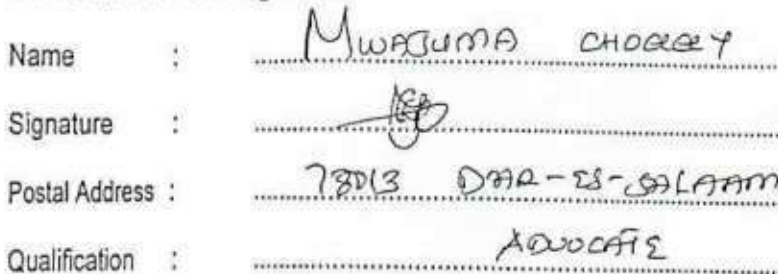 Name : MWAJUMA
Signature :
Postal Address : DAR-ES-SALAAM
Qualification : ADVOCATE